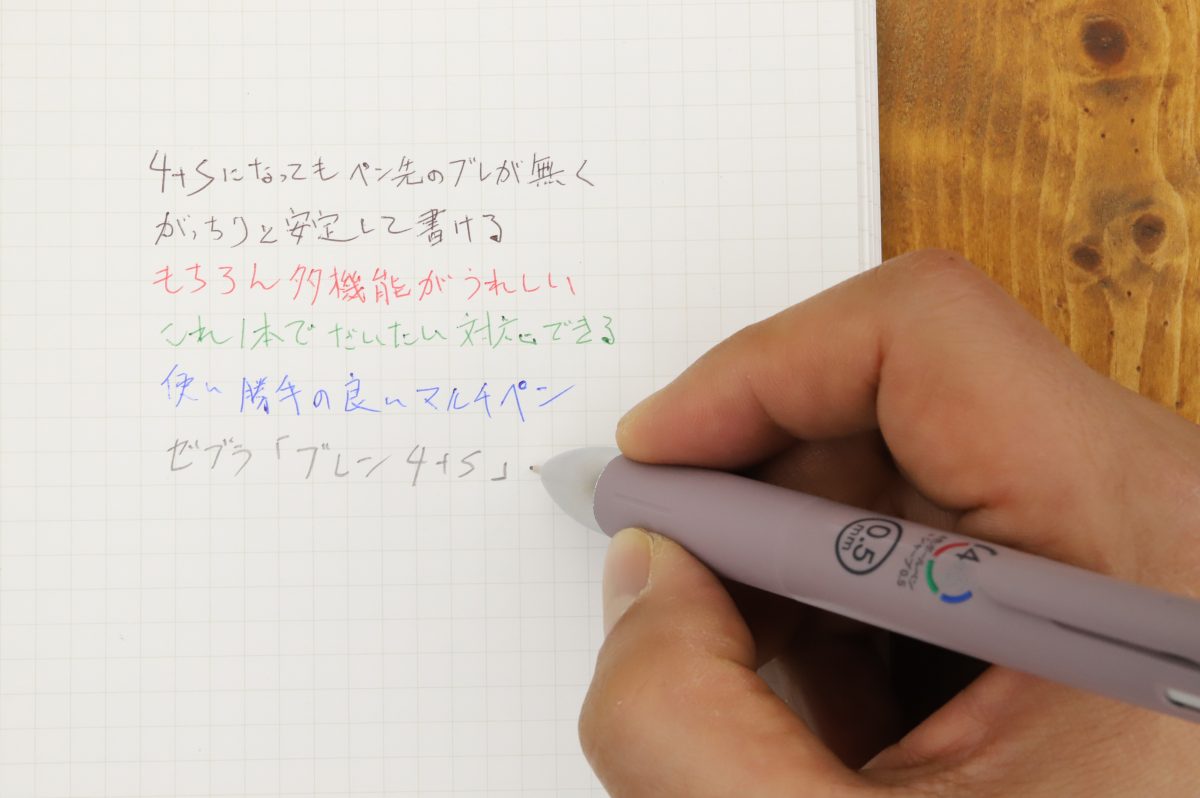 4+Sになってもペン先のブレが無く
がっちりと安定して書ける
もちろん多機能がうれしい
これ1本でだいたい対応できる
使い勝手の良いマルチペン
ゼブラ「ブレン4+S」
0.5
mm
4